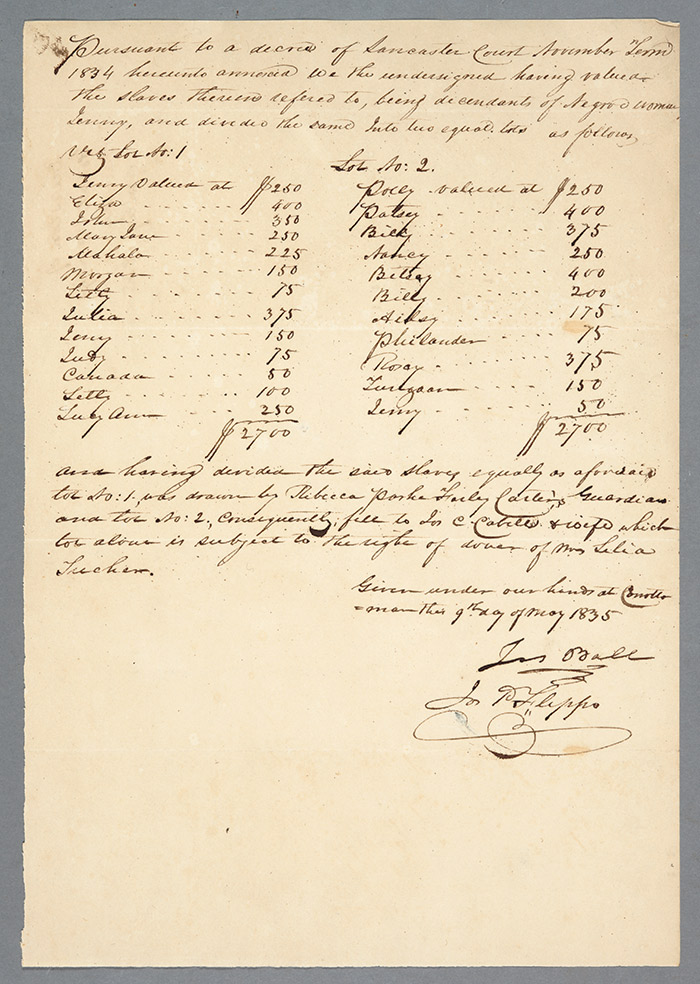 Pursuant to a decree of Lancaster Court November Term
1834 hereunto annexed we the undersigned having valued
the slaves therein refered to, being decendants of Negroe woman
Jenny, and divided the same Into two equal lots as follows
Viz Lot No: 1
Jenny Valued at $250
Eliza 400
John 350
Mary Jane 250
Mahala 225
Morgan 150
Letty 75
Julia 375
Jenny 150
Judy 75
Canada 50
Letty 100
Lucy Ann 250
$2700
Lot No: 2.
Polly valued at $250
Patsey 400
Billy 375
Nancy 250
Betsey 400
Billy 200
Ailsy 175
Philander 75
Rosey 375
150
Jenny 50
$2700
and having divided the said slaves equally as aforesaid
lot No: 1, was drawn by Rebecca Parke Farley Carter's Guardian
and lot No: 2, Consequently, fell to Jos C Cabell & wife which
lot alone is subject to the right of dower of Mrs Lelia
Tucker.
Given under our hands at Corotto
=man this 9th day of May 1835
Jas Ball
Jos P Flippo